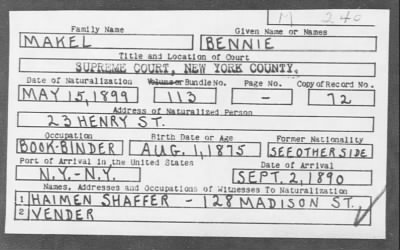 M 240
Family Name Given Name or Names
MAKEL BENNIE
Title and Location of Court
SUPREME COURT, NEW YORK COUNTY.
Date of Naturalization Volume or Bundle No. Page No. Copy of Record No.
MAY 15, 1899 113 - 72
Address of Naturalized Person
23 HENRY ST.
Occupation Birth Date or Age Former Nationality
BOOK-BINDER AUG. 1, 1875 SEE OTHER SIDE
Port of Arrival in the United States Date of Arrival
N.Y.-N.Y. SEPT. 2, 1890
Names, Addresses and Occupations of Witnesses To Naturalization
1 HAIMEN SHAFFER - 128 MADISON ST,
2 VENDER